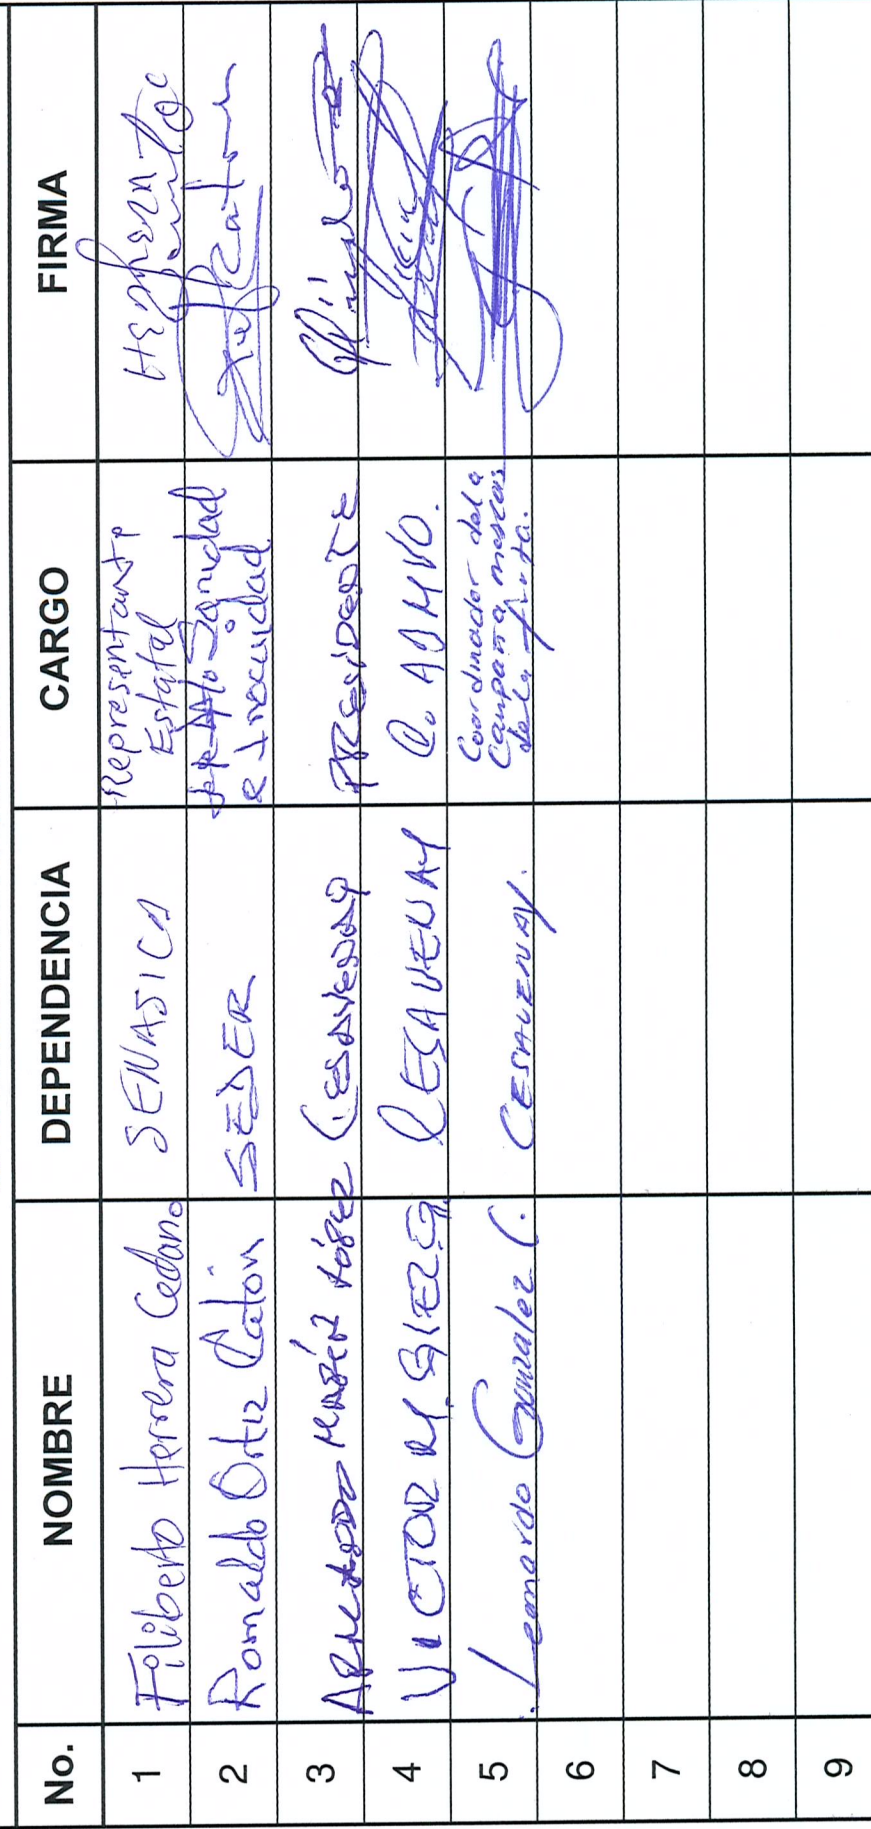 No. NOMBRE DEPENDENCIA CARGO FIRMA
1 Filiberto Herrera Cedano SENASICA Representante
Estatal
2 Romaldo Ortiz Catón SEDER Jefe Dpto Sanidad
e Inocuidad
3 Marín López Cesavenay PRESIDENTE
4 VICTOR M. CESAVENAY C. ADMVO.
5 Leonardo Gonzalez C. CESAVENAY. Coordinador de la
Campaña moscas
de la fruta.
6
7
8
9